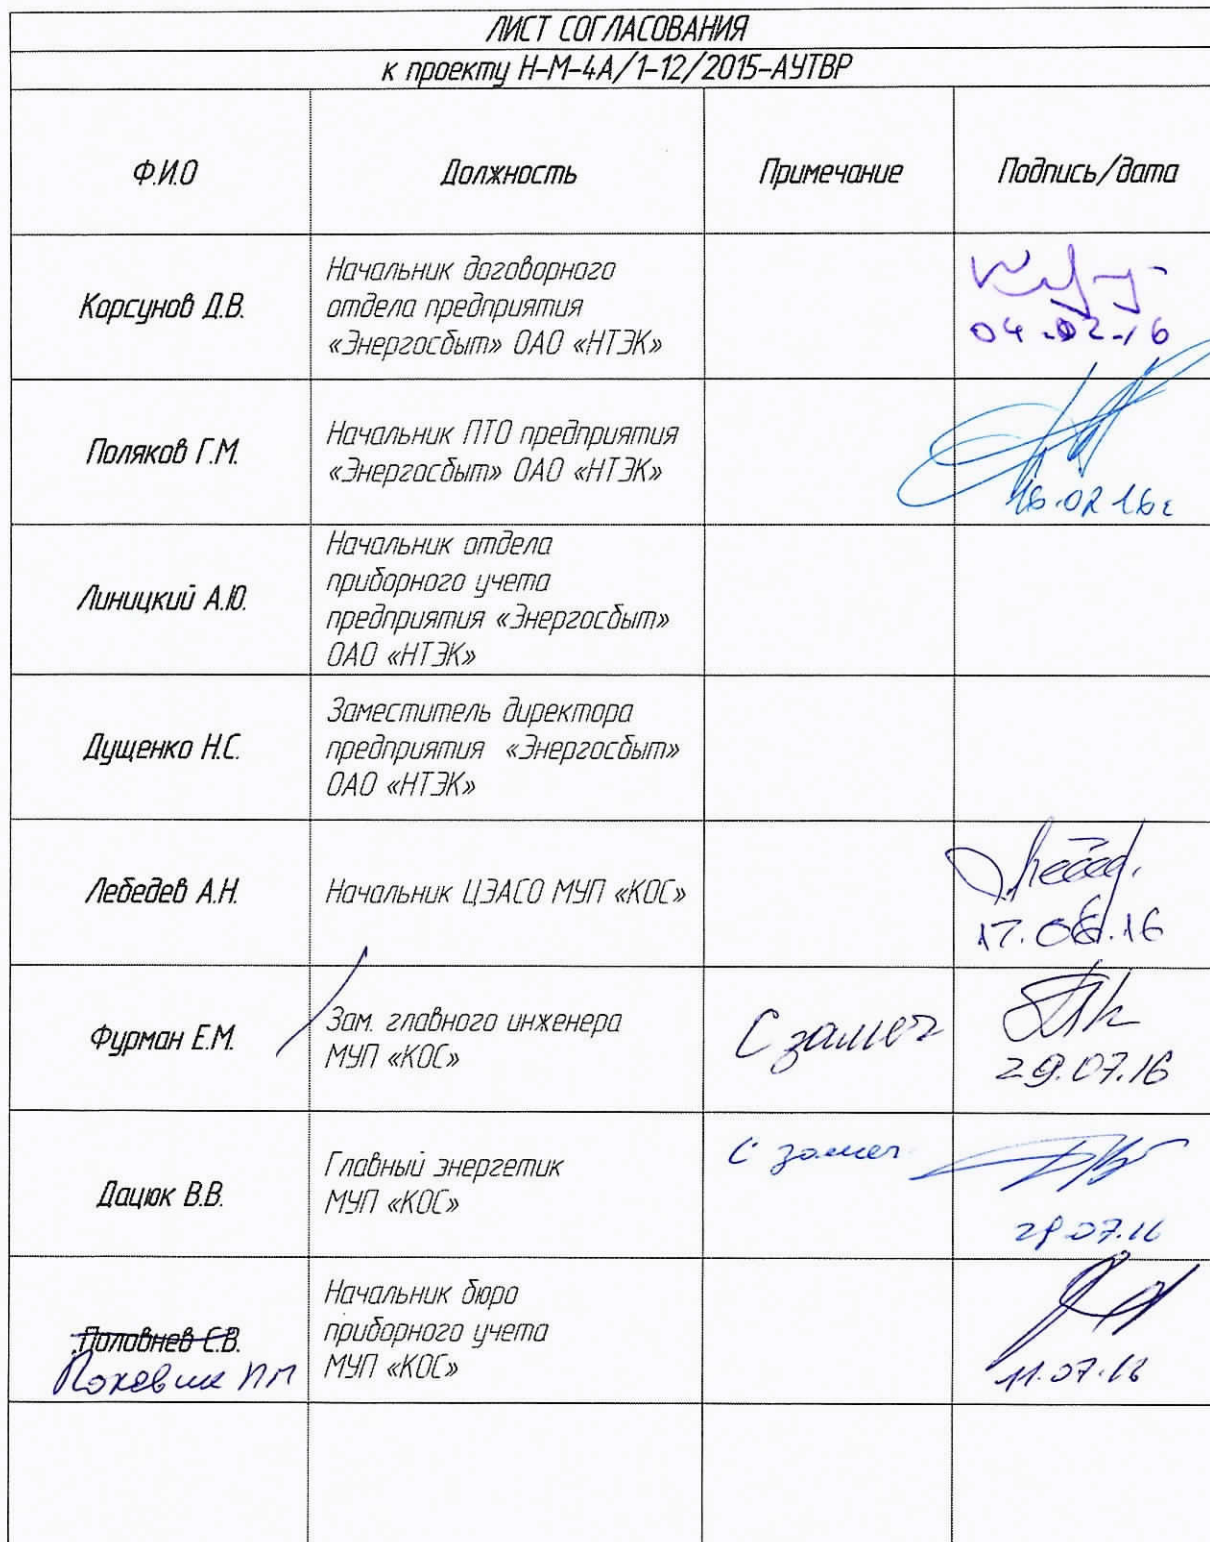 ЛИСТ СОГЛАСОВАНИЯ
к проекту Н-М-4А/1-12/2015-АУТВР
Ф.И.О Должность Примечание Подпись/дата
Корсунов Д.В.
Начальник договорного
отдела предприятия
«Энергосбыт» ОАО «НТЭК»
04.02.16
Поляков Г.М.
Начальник ПТО предприятия
«Энергосбыт» ОАО «НТЭК»
16.02.16г
Линицкий А.Ю.
Начальник отдела
приборного учета
предприятия «Энергосбыт»
ОАО «НТЭК»
Дущенко Н.С.
Заместитель директора
предприятия «Энергосбыт»
ОАО «НТЭК»
Лебедев А.Н.
Начальник ЦЭАСО МУП «КОС»
17.08.16
Фурман Е.М.
Зам. главного инженера
МУП «КОС»
С замеч
29.07.16
Дацюк В.В.
Главный энергетик
МУП «КОС»
С замеч
29.07.16
Половнев Е.В.
Начальник бюро
приборного учета
МУП «КОС»
11.07.16